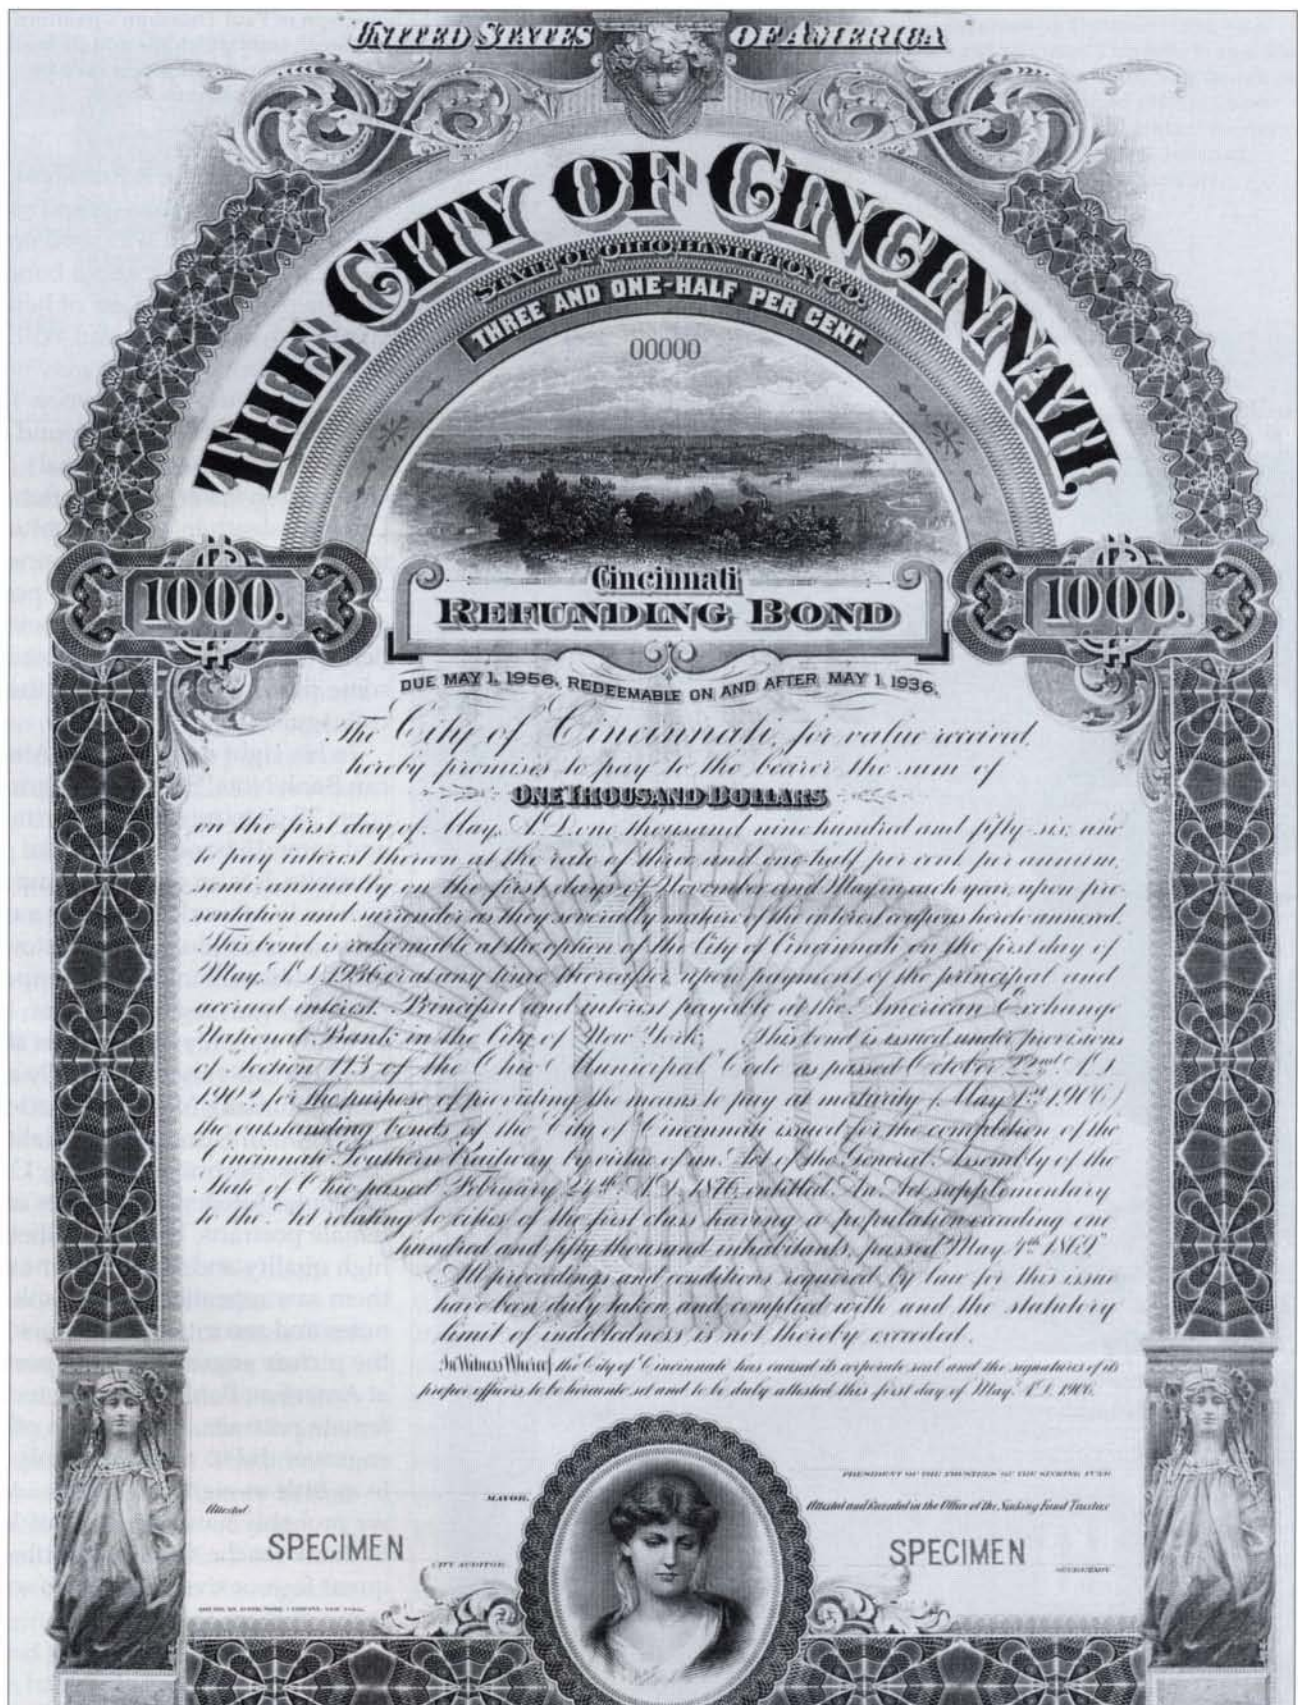 UNITED STATES OF AMERICA
THE CITY OF CINCINNATI,
STATE OF OHIO, HAMILTON CO.
THREE AND ONE-HALF PER CENT.
00000
1000.
Cincinnati
REFUNDING BOND
1000.
DUE MAY 1, 1956, REDEEMABLE ON AND AFTER MAY 1, 1936.
The City of Cincinnati, for value received,
hereby promises to pay to the bearer the sum of
ONE THOUSAND DOLLARS
on the first day of May, A.D. one thousand nine hundred and fifty-six, and
to pay interest thereon at the rate of three and one-half per cent. per annum,
semi-annually on the first days of November and May in each year, upon pre-
sentation and surrender as they severally mature of the interest coupons hereto annexed.
This bond is redeemable at the option of the City of Cincinnati on the first day of
May, A.D. 1936 or at any time thereafter upon payment of the principal and
accrued interest. Principal and interest payable at the American Exchange
National Bank in the City of New York. This bond is issued under provisions
of Section 113 of the Ohio Municipal Code as passed October 22nd A.D.
1902, for the purpose of providing the means to pay at maturity (May 1st 1906)
the outstanding bonds of the City of Cincinnati issued for the completion of the
Cincinnati Southern Railway by virtue of an Act of the General Assembly of the
State of Ohio passed February 24th A.D. 1876, entitled "An Act supplementary
to the Act relating to cities of the first class having a population exceeding one
hundred and fifty thousand inhabitants, passed May 4th 1869."
All proceedings and conditions required by law for this issue
have been duly taken and complied with and the statutory
limit of indebtedness is not thereby exceeded.
In Witness Whereof, the City of Cincinnati has caused its corporate seal and the signatures of its
proper officers to be hereunto set and to be duly attested this first day of May, A.D. 1906.
PRESIDENT OF THE TRUSTEES OF THE SINKING FUND
MAYOR.
Attested
Attested and Recorded in the Office of the Sinking Fund Trustees
SPECIMEN
SPECIMEN
CITY AUDITOR
SECRETARY
AMERICAN BANK NOTE COMPANY, NEW YORK.